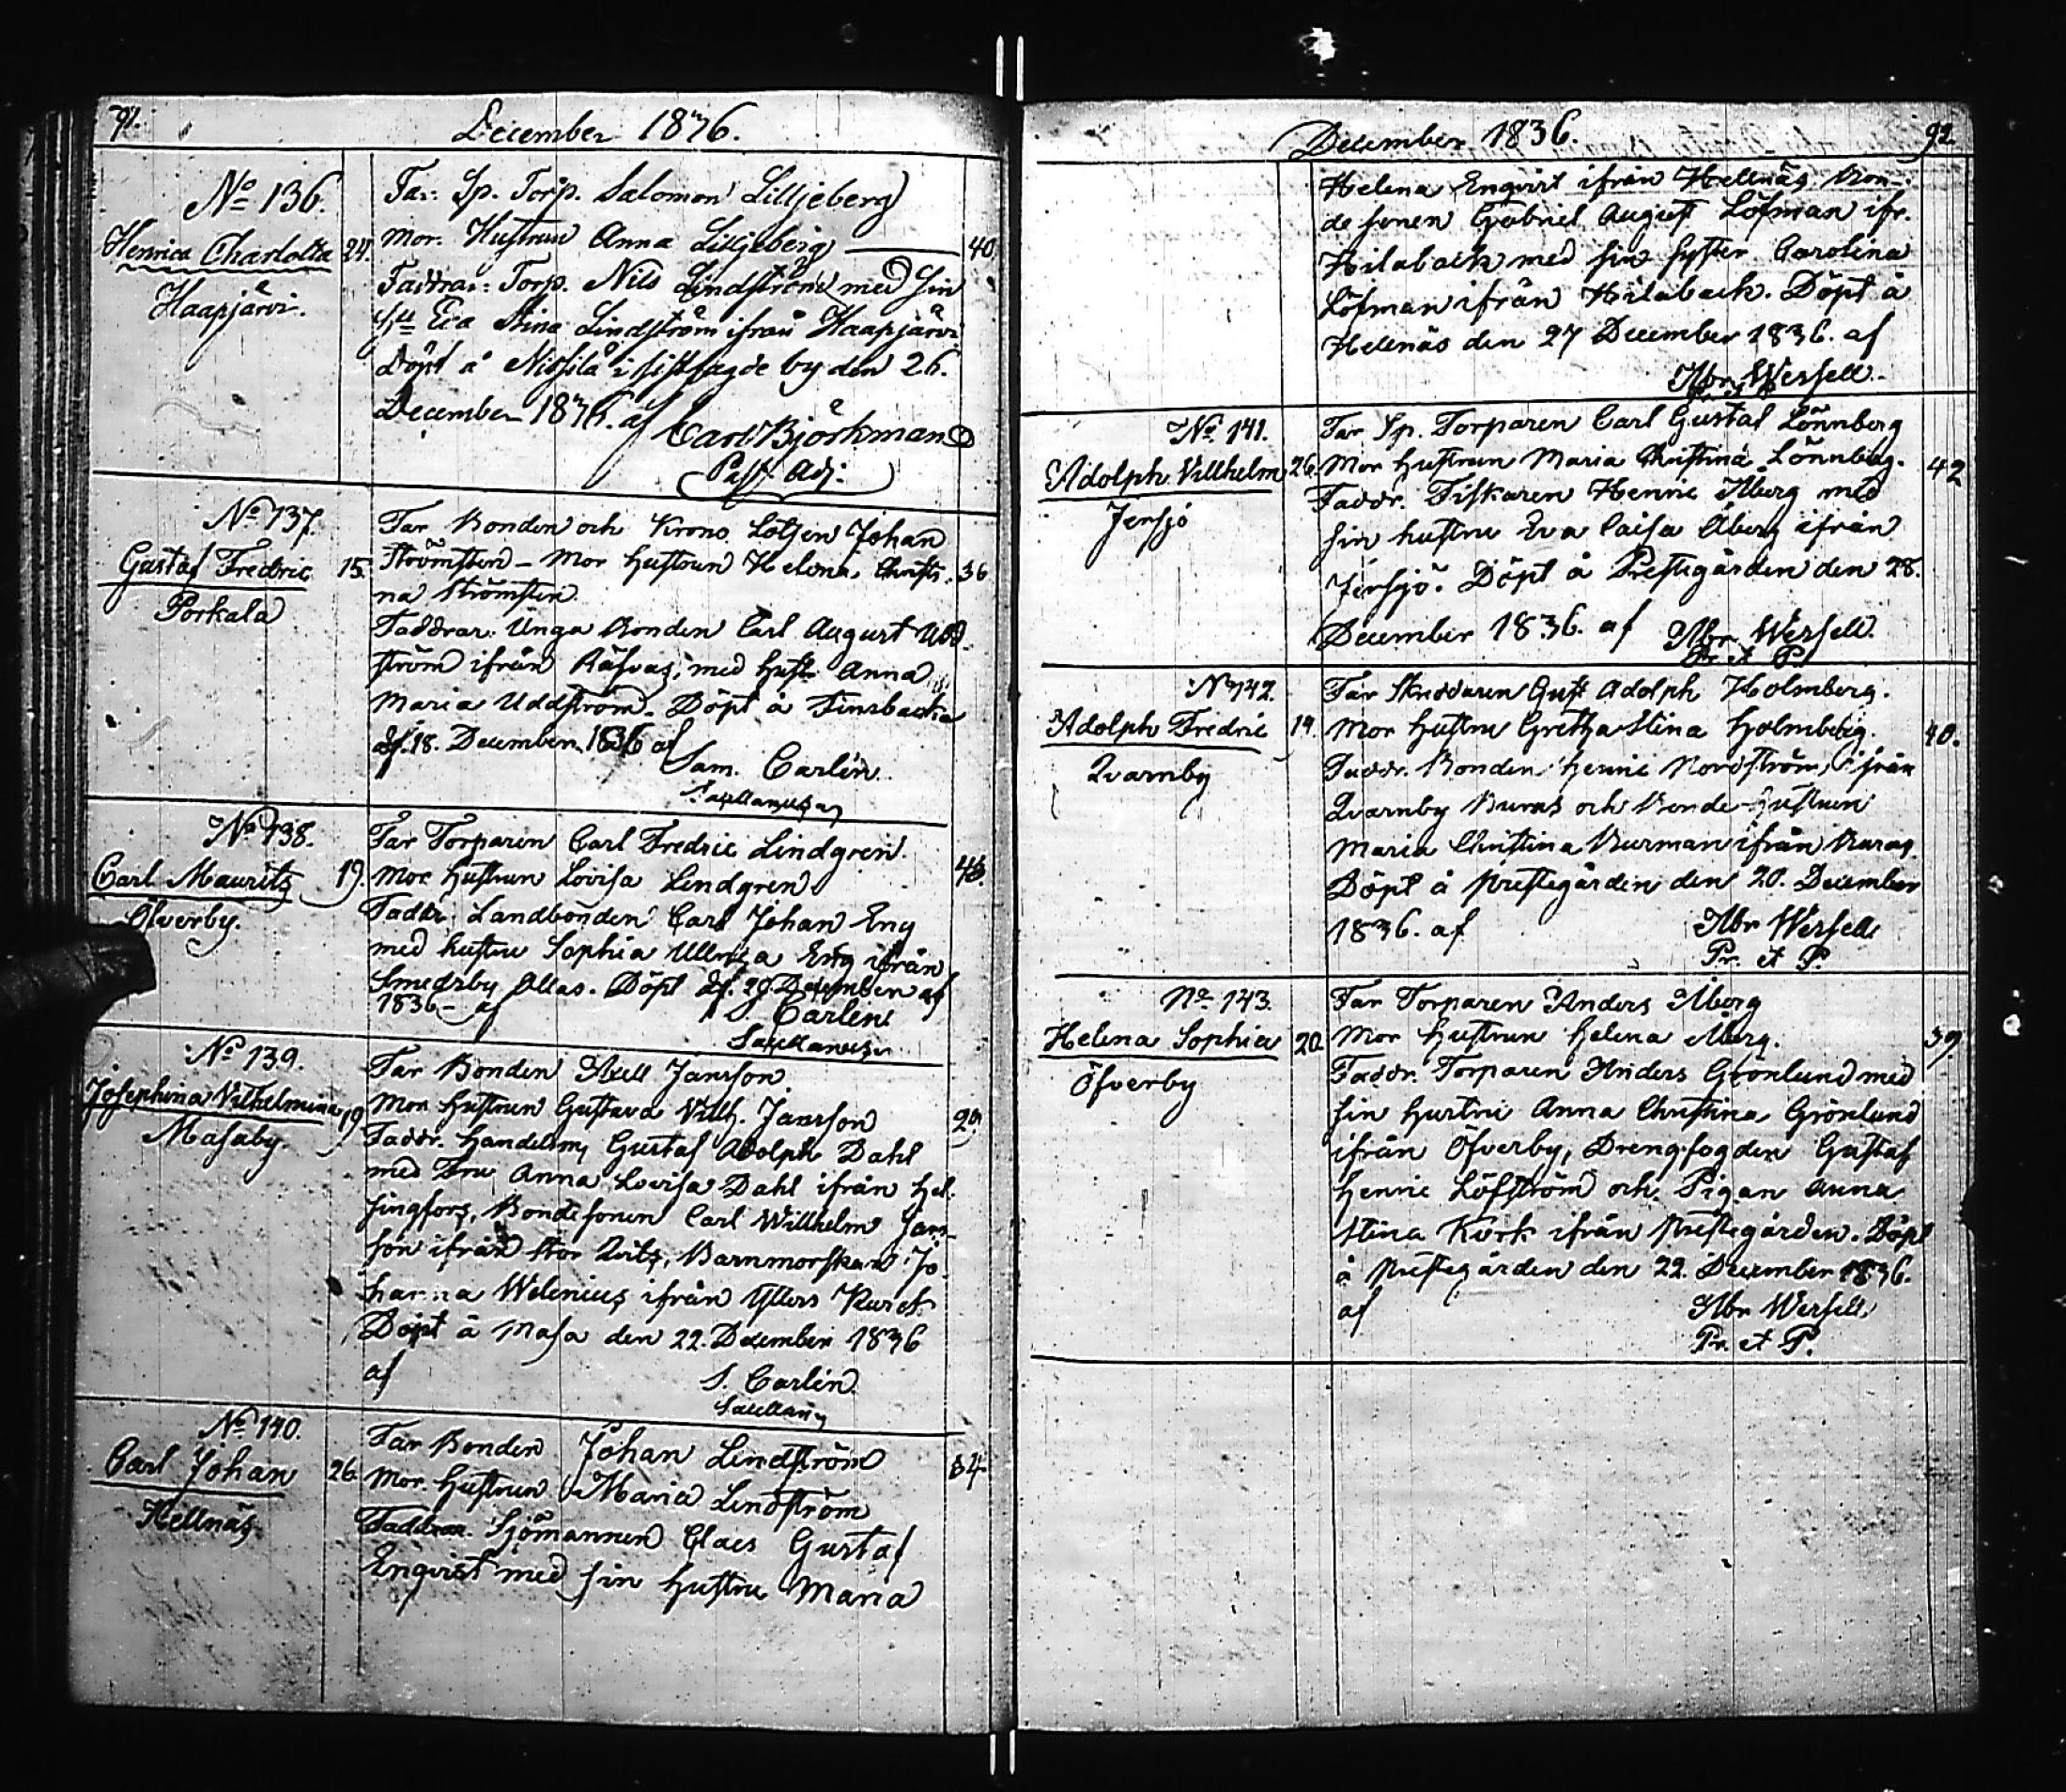 91.
December 1836.
No 136.
Henrica Charlotta 24.
Haapjärvi.
Far: Sp. Torp. Salomon Lilljeberg
Mor. Hustrun Anna Liljeberg 40.
Faddrar: Torp. Nils Lindström med sin
Eva Stina Lindström ifrån Haapjärvi
Döpt å Nissilä i sistsagde by den 26.
December 1836. af Carl Björkman
Past. Adj.
No 137.
Gustaf Fredric 15.
Porkala
Far Bonden och Krono Lotsen Johan
Strömsten - Mor hustrun Helena Christi- 36
na Strömsten.
Faddrar: Unga Bonden Carl August Udd-
ström ifrån Räfvas, med hust. Anna
Maria Uddström. Döpt å Finsbacka
d. 18. December 1836 af
Sam. Carlén
Sacellanus
No 138.
Carl Mauritz 19.
Öfverby.
Far Torparen Carl Fredric Lindgren.
Mor hustrun Lovisa Lindgren
Faddr. Landbonden Carl Johan Eng
med hustru Sophia Ulrica Eng ifrån
Smedsby Ollas. Döpt d. 29 December
1836 - af S. Carlén
Sacellanus
No 139.
Josephina Vilhelmina 19
Masaby.
Far Bonden Axell Jansson.
Mor hustrun Gustava Vilh. Jansson 29.
Faddr. Handelsm. Gustaf Adolph Dahl
med Fru Anna Lovisa Dahl ifrån Hel-
singfors, Bondesonen Carl Willhelm Jans-
son ifrån Stor Qvits, Barnmorskan Jo-
hanna Welenius ifrån Yllers
Döpt å Masa den 22. December 1836
af S. Carlén.
Sacellanus
No 140.
Carl Johan 26.
Hellnäs.
Far Bonden Johan Lindström 34
Mor. hustrun Maria Lindström
Faddrar. Sjömannen Claes Gustaf
Enqvist med sin hustru Maria
December 1836. 92
Helena Enqvist ifrån Hellnäs. Bon-
desonen Gabriel August Löfman ifr.
Hilaback med sin syster Carolina
Löfman ifrån Hilaback. Döpt å
Hellnäs den 27 December 1836. af
Abr. Werfell.
No 141.
Adolph Villhelm 26.
Jersjö
Far Sp. Torparen Carl Gustaf Lönnberg
Mor hustrun Maria Christina Lönnberg. 42
Faddr. Fiskaren Henric Åberg med
sin hustru Eva Caisa Åberg ifrån
Jersjö. Döpt å Prestegården den 28.
December 1836. af Abr. Werfell.
Pr. et P.
No 142.
Adolph Fredric 19.
Qvarnby
Far Skreddaren Gust Adolph Holmberg.
Mor hustru Gretha Stina Holmberg. 40.
Faddr. Bonden Henric Nordström, ifrån
Qvarnby Buras och Bonde hustrun
Maria Christina Burman ifrån Buras.
Döpt å Prestegården den 20. December
1836. af Abr Werfell
Pr. et P.
No 143.
Helena Sophia 20.
Öfverby
Far Torparen Anders Åberg
Mor hustrun Helena Åberg. 39.
Faddr. Torparen Anders Grönlund med
sin hustru Anna Christina Grönlund
ifrån Öfverby, Drengfogden Gustaf
Henric Löfström och Pigan Anna
Stina Kork ifrån Prestegården. Döpt
å Prestegården den 22. December 1836.
af Abr Werfell.
Pr. et P.